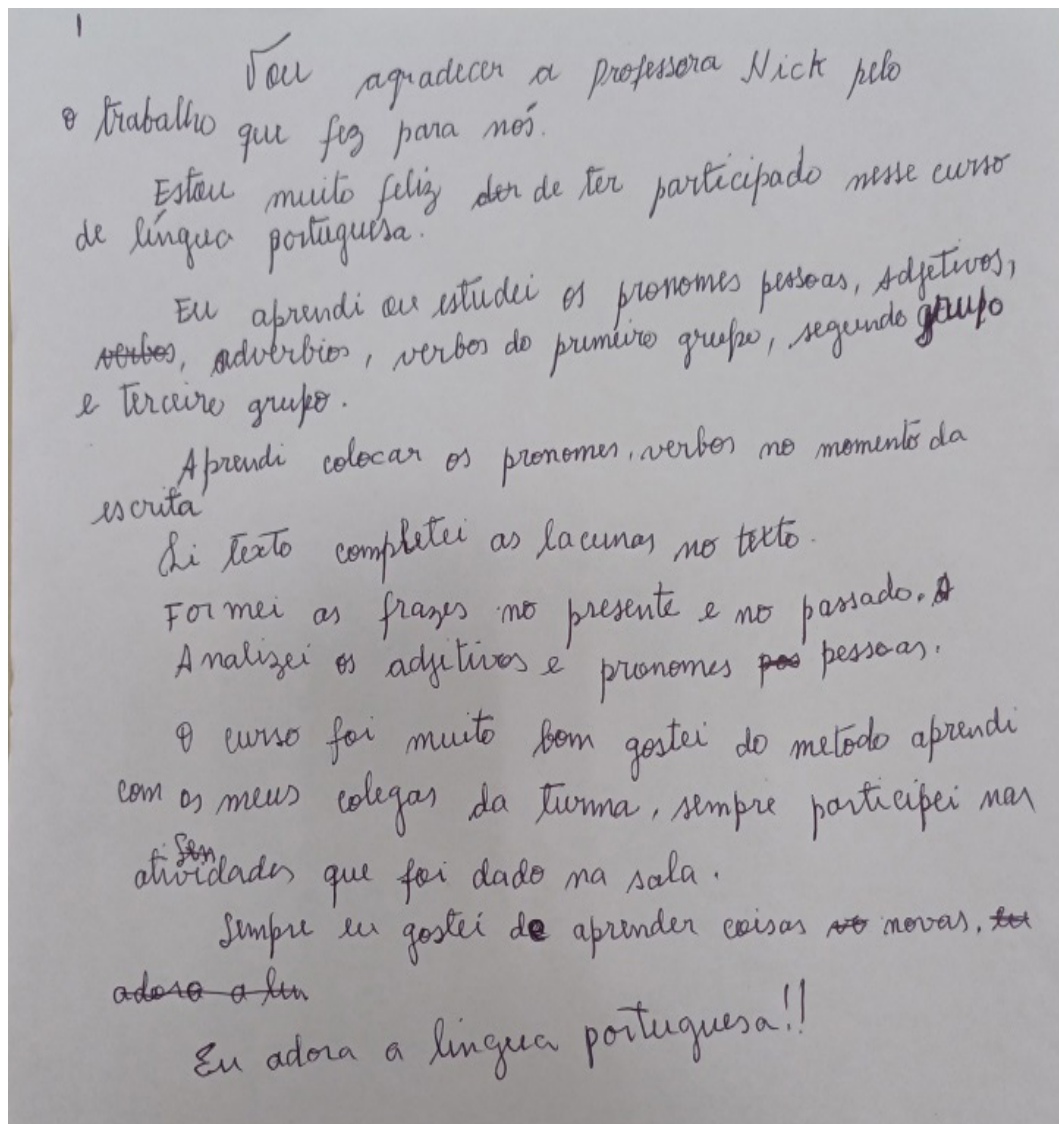 1
Vou agradecer a professora Nick pelo
o trabalho que fez para nós.
Estou muito feliz de ter participado nesse curso
de língua portuguesa.
Eu aprendi ou estudei os pronomes pessoas, adjetivos,
verbos, advérbios, verbos do primeiro grupo, segundo grupo
e terceiro grupo.
Aprendi colocar os pronomes, verbos no momento da
escrita
Li texto completei as lacunas no texto.
Formei as frazes no presente e no passado. A
Analizei os adjetivos e pronomes pos pessoas.
O curso foi muito bom gostei do metodo aprendi
com os meus colegas da turma, sempre participei nas
atividades que foi dado na sala.
Sempre eu gostei de aprender coisas vo novas. eu
adora a lin
Eu adora a lingua portuguesa!!